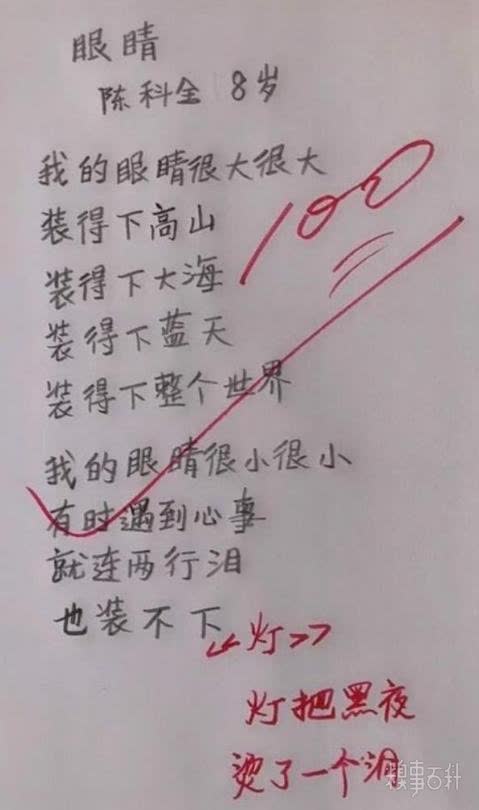 眼睛
陈科全 8岁
我的眼睛很大很大
装得下高山
装得下大海
装得下蓝天
装得下整个世界
我的眼睛很小很小
有时遇到心事
就连两行泪
也装不下
100
《灯》
灯把黑夜
烫了一个洞
糗事百科